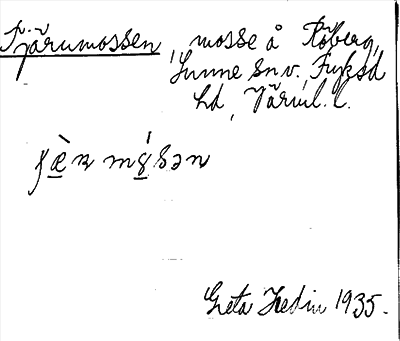 Tjärumossen, mosse å Röberg,
Sunne sn v., Fryksd
hd, Värml. l.
Greta Hedin 1935.